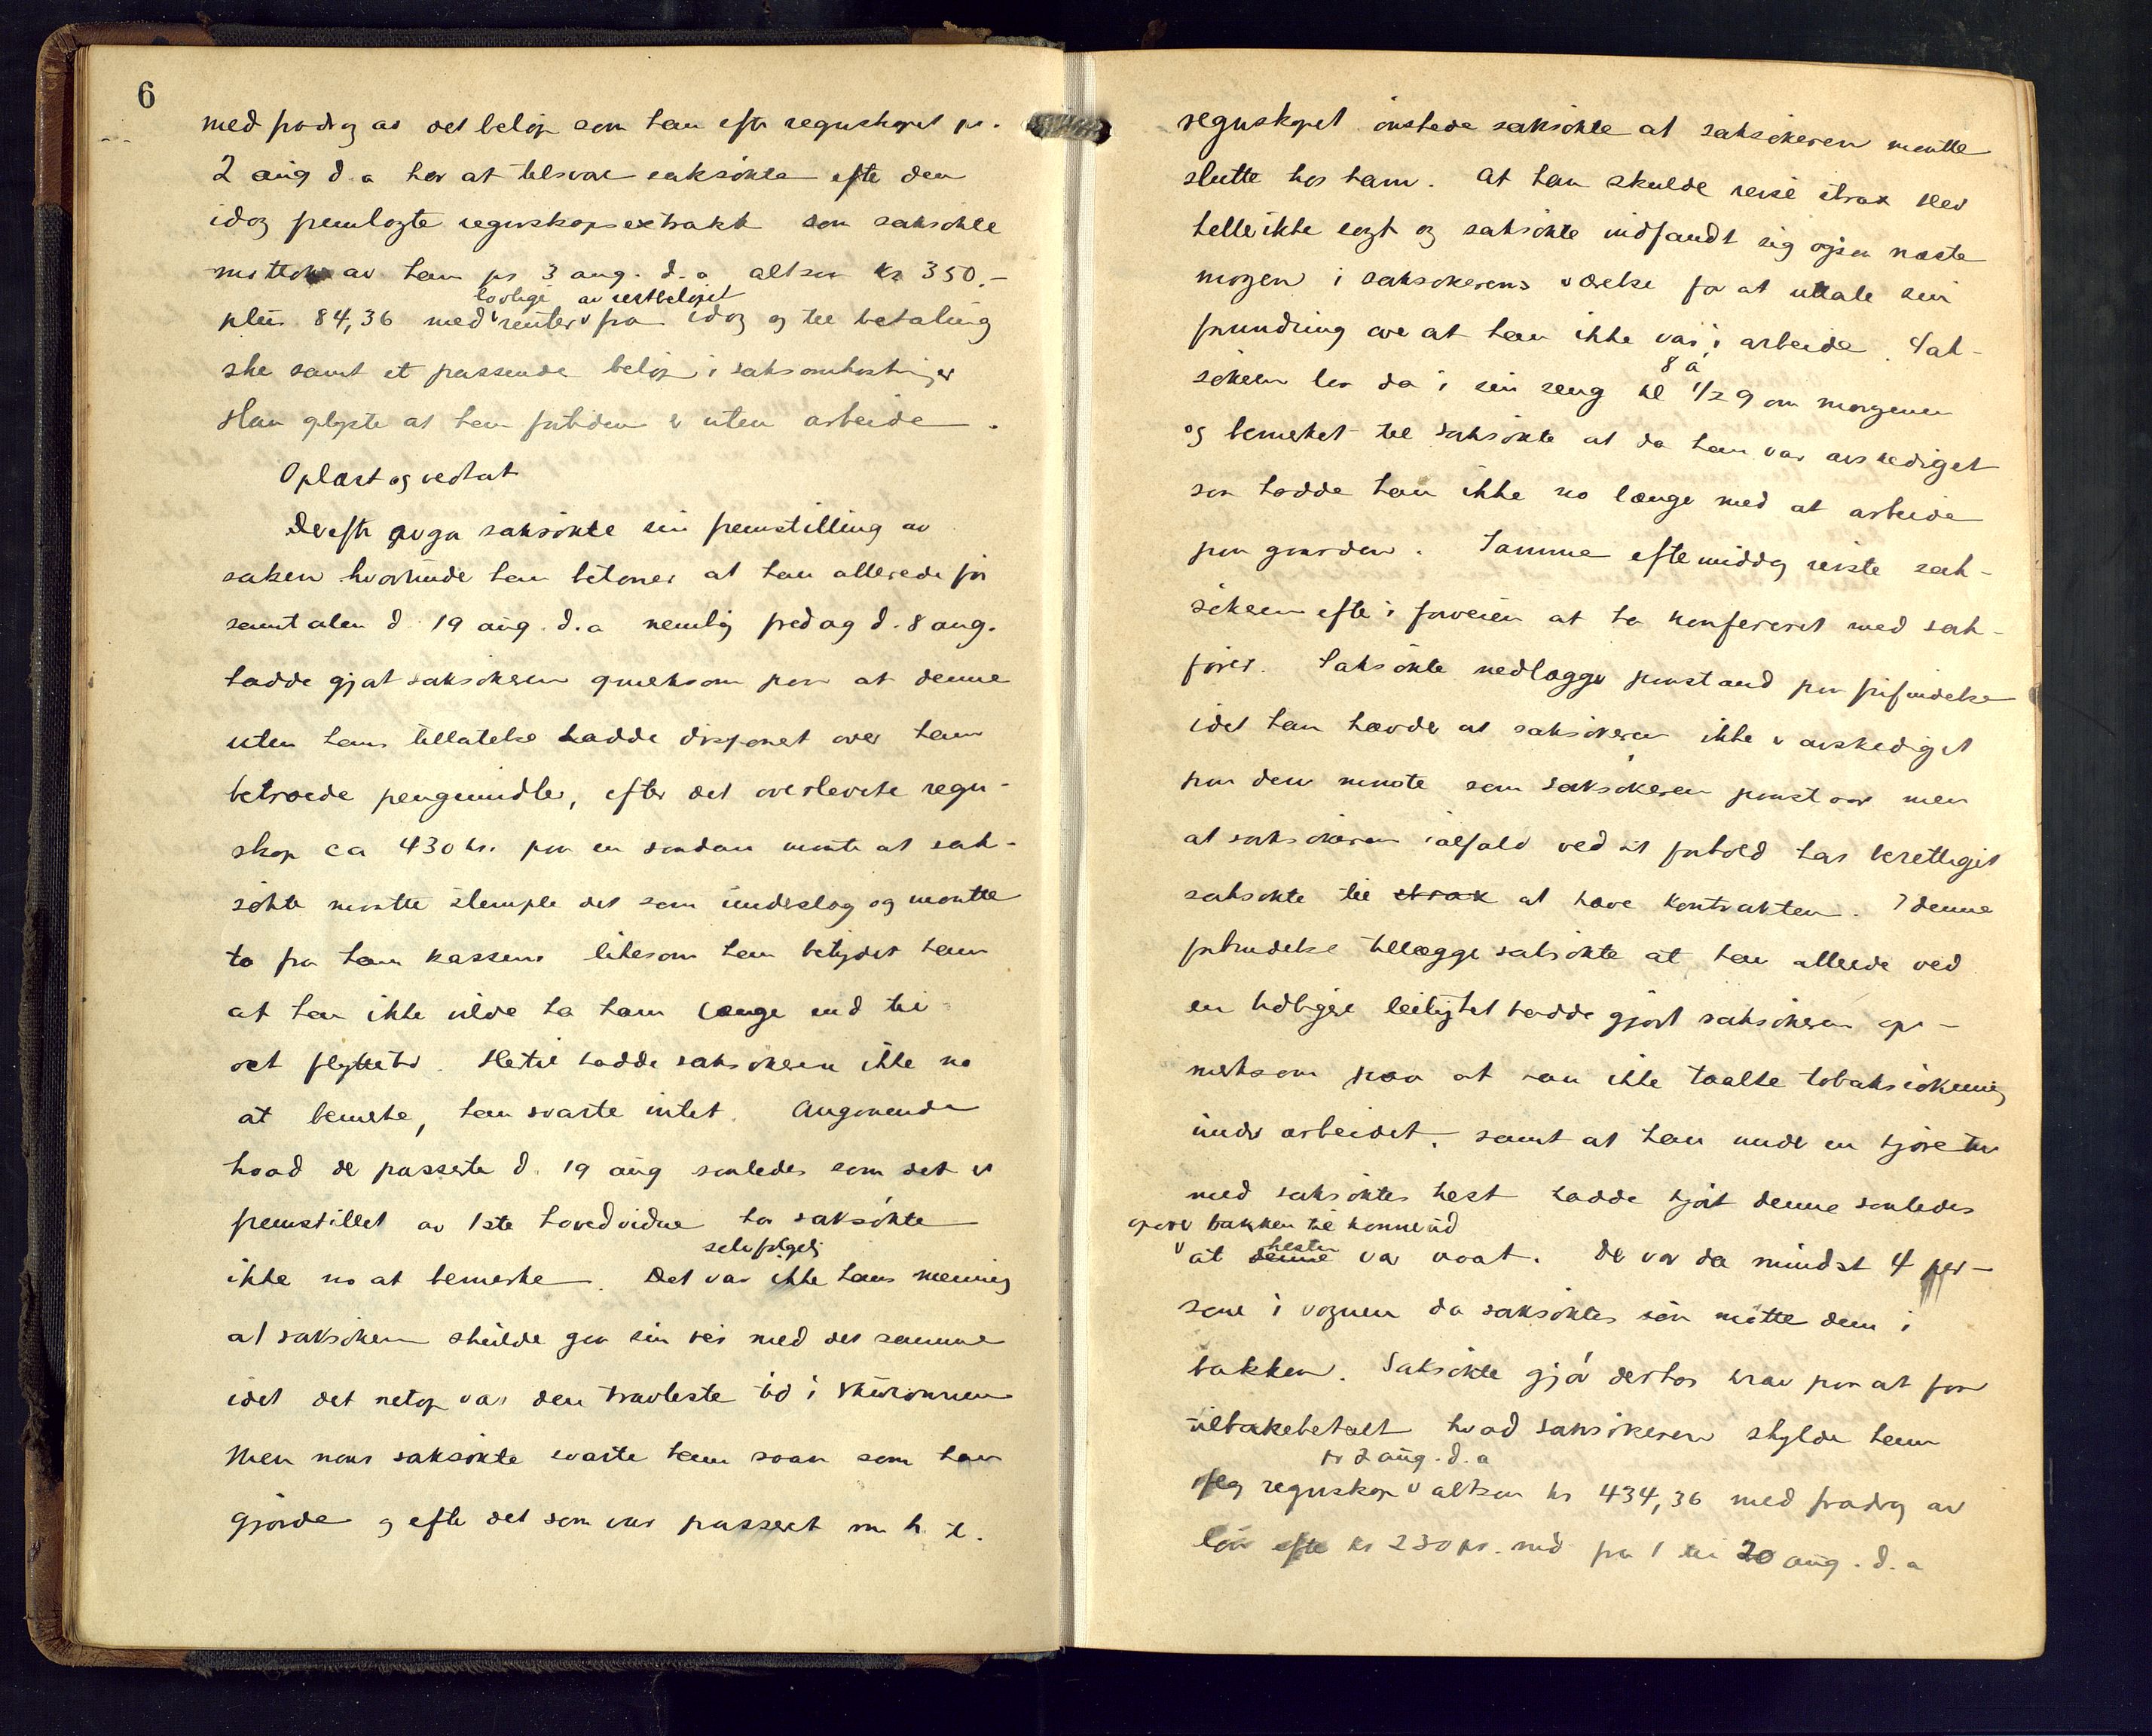 6
med fradrag av det beløp som han efter regnskapet pr.
2 aug d.a har at tilsvare saksøkte efter den
idag fremlagte regnskapsextrakt som saksøkte
mottok av ham pr 3 aug. d.a. altsaa kr 350.-
lovlige av restbeløpet
plus 84,36 med renter fra idag og til betaling
sker samt et passende beløp i saksomkostninger
Han oplyste at han fortiden er uten arbeide.
Oplæst og vedtat
Derefter avga saksøkte sin fremstilling av
saken hvorunder han betoner at han allerede før
samtalen d. 19 aug. d.a nemlig fredag d. 8 aug.
hadde gjort saksøkeren opmerksom paa at denne
uten hans tillatelse hadde disponert over ham
betroede pengemidler, efter det overleverte regn-
skap ca 430 kr. paa en saadan maate at sak-
søkte maatte stemple det som underslag og maatte
ta fra ham kassen likesom han betydet ham
at han ikke vilde ha ham længer end til
det flyttet. Hertil hadde saksøkeren ikke no
at bemerke, han svarte intet. Angaaende
hvad der passerte d. 19 aug saaledes som det er
fremstillet av 1ste hovedvidne har saksøkte
selvfølgelig
ikke no at bemerke. Det var ikke hans mening
at saksøkeren skulde gaa sin vei med det samme
idet det netop var den travleste tid i skuronnen
Men naar saksøkte svarte ham saan som han
gjorde og efter det som var passert m. h. t.
regnskapet ønskede saksøkte at saksøkeren maatte
slutte hos ham. At han skulde reise strax blev
heller ikke sagt og saksøkte indfandt sig ogsaa næste
morgen i saksøkerens værelse for at uttale sin
forundring over at han ikke var i arbeide. Sak-
8 a
søkeren laa da i sin seng kl 1/2 9 om morgenen
og bemerket til saksøkte at da han var avskediget
saa hadde han ikke no længer med at arbeide
paa gaarden. Samme eftermiddag reiste sak-
søkeren efter i forveien at ha konferert med sak-
fører. Saksøkte nedlægger paastand paa frifindelse
idet han hævder at saksøkeren ikke er avskediget
paa den maate som saksøkeren paastaar men
at saksøkeren ialfald ved sit forhold har berettiget
saksøkte til strax at hæve kontrakten. I denne
forbindelse tillægger saksøkte at han allerede ved
en tidligere leilighet hadde gjort saksøkeren op-
merksom paa at han ikke taalte tobaksrøkning
under arbeidet, samt at han under en kjøretur
med saksøktes hest hadde kjørt denne saaledes
opover bakken til
at denne hesten var vaat. Der var da mindst 4 per-
soner i vognen da saksøktes søn møtte dem i
bakken. Saksøkte gjør derhos krav paa at faa
tilbakebetalt hvad saksøkeren skylder ham
pr 2 aug. d.a
ifølg regnskap altsaa kr 434,36 med fradrag av
løn efter kr 230 pr. md fra 1 til 20 aug. d.a